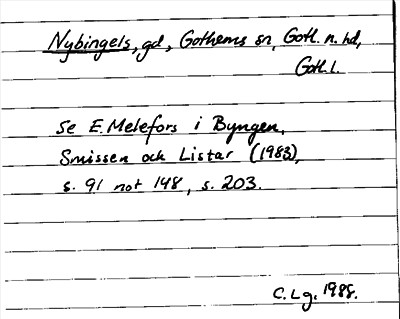 Nybingels, gd, Gothems sn, Gotl. n. hd,
Gotl. l.
Se E. Melefors i Byngen,
Smissen och Listar (1983),
s. 91 not 148, s. 203.
C. Lg. 1988.